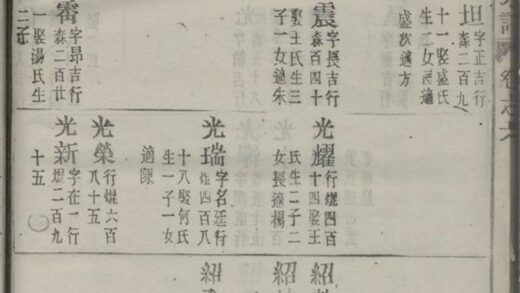 坦
字正吉行
森二百九
十一娶盛氏
生二女長適
盛次適方
震
字長吉行
森百四十
娶王氏生三
子一女適朱
審
字昂吉行
森二百廿
一娶湯氏生
二子
光耀
行焜四百
十四娶王
氏生二子二
女長適楊
光瑞
字名廷行
焜四百八
十八娶何氏
生一子一女
適陳
光榮
行焜六百
八十五
光新
字在一行
焜二百九
十五
紹
紹
紹
卷之六